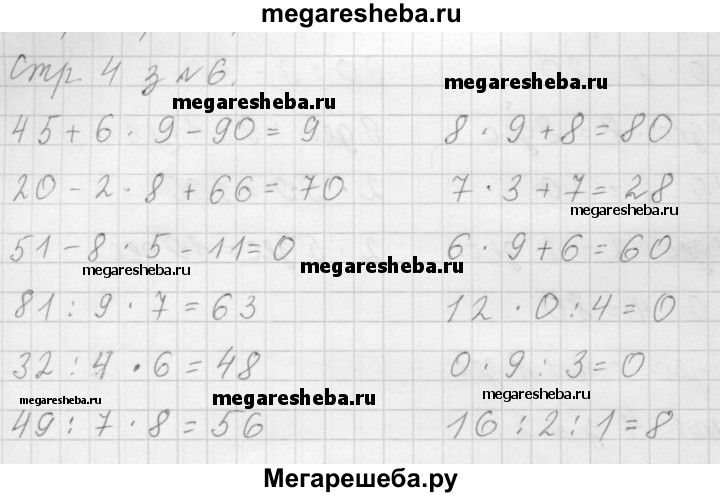 megaresheba.ru
Стр 4 з №6.
megaresheba.ru megaresheba.ru
45+6·9-90=9 8·9+8=80
20-2·8+66=70 7·3+7=28
megaresheba.ru
51-8·5-11=0 6·9+6=60
megaresheba.ru megaresheba.ru
81:9·7=63 12·0:4=0
32:4·6=48 0·9:3=0
megaresheba.ru megaresheba.ru megaresheba.ru
49:7·8=56 16:2:1=8
Мегарешеба.ру